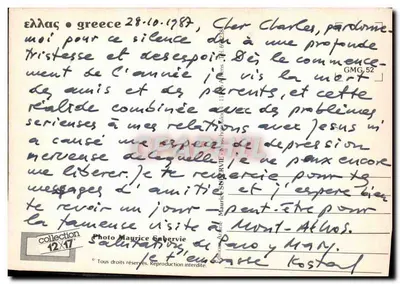 ελλας • greece 28.10.1987, Cher Charles, pardonne-
moi pour ce silence du à une profonde
tristesse et desespoir. Dès le commence-
ment de l'année je vis la mort
GMG 52
des amis et des parents, et cette
réalité combinée avec des problèmes
serieuses à mes relations avec Jesus m'
a causé une espece de depression
nerveuse de laquelle je ne peux encore
me liberer. Je te remercie pour tes
messages d'amitié et j'espère bien
te revoir un jour - peut-être pour
la fameuse visite à Mont-Athos.
Photo Maurice Subervie
collection
12x17
Salutations de Paco y Mary.
* Tous droits réservés. Reproduction interdite.
Je t'embrasse Kostas